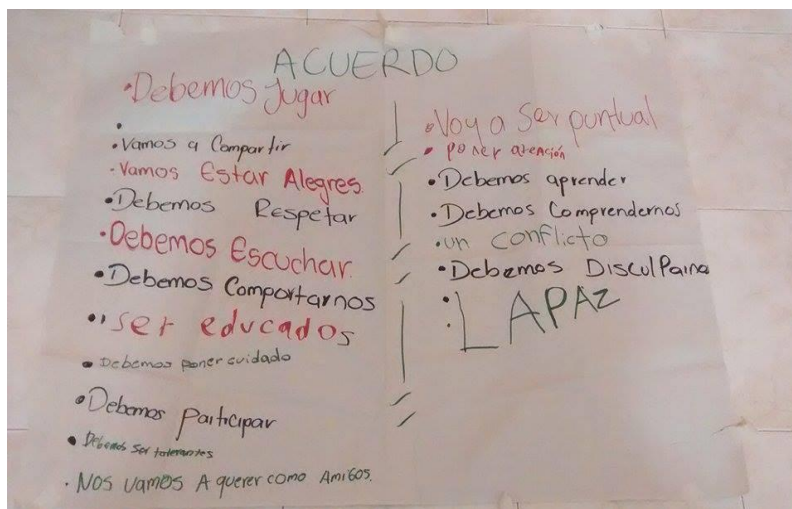 ACUERDO
• Debemos Jugar
•
• Vamos a Compartir
• Vamos Estar Alegres.
• Debemos Respetar
• Debemos Escuchar.
• Debemos Comportarnos
• Ser educados
• Debemos poner cuidado
• Debemos Participar
• Debemos Ser tolerantes
• Nos vamos A querer como Amigos.
• Voy a Ser puntual
• Poner atención
• Debemos aprender
• Debemos Comprendernos
• un conflicto
• Debemos DisculParno
• LA PAZ